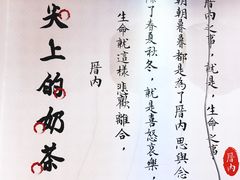 厝內之事,就是,生命之事
朝朝暮暮都是為了厝內思與念
除了春夏秋冬,就是喜怒哀樂,
生命就這樣悲歡離合,
厝內
尖上的奶茶